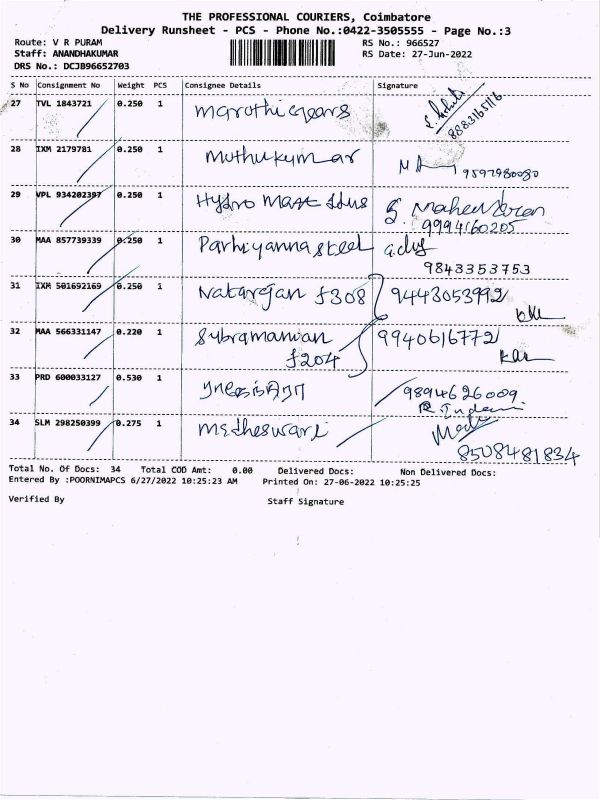 THE PROFESSIONAL COURIERS, Coimbatore
Delivery Runsheet - PCS - Phone No.:0422-3505555 - Page No.:3
Route: V R PURAM RS No.: 966527
Staff: ANANDHAKUMAR RS Date: 27-Jun-2022
DRS No.: DCJB96652703
S No Consignment No Weight PCS Consignee Details Signature
27 TVL 1843721 0.250 1 Maruthi Gears
8883165716
28 IXM 2179781 0.250 1 Muthukumar 9597980080
29 VPL 934202397 0.250 1
9994160205
30 MAA 857739339 0.250 1 Parhiyanna steel
9843353753
31 IXM 501692169 0.250 1 Natarajan F308 9443053992
32 MAA 566331147 0.220 1 Subramanian 9940616772
F204
33 PRD 600033127 0.530 1 9894626009
34 SLM 298250399 0.275 1
8508481834
Total No. Of Docs: 34 Total COD Amt: 0.00 Delivered Docs: Non Delivered Docs:
Entered By :POORNIMAPCS 6/27/2022 10:25:23 AM Printed On: 27-06-2022 10:25:25
Verified By Staff Signature